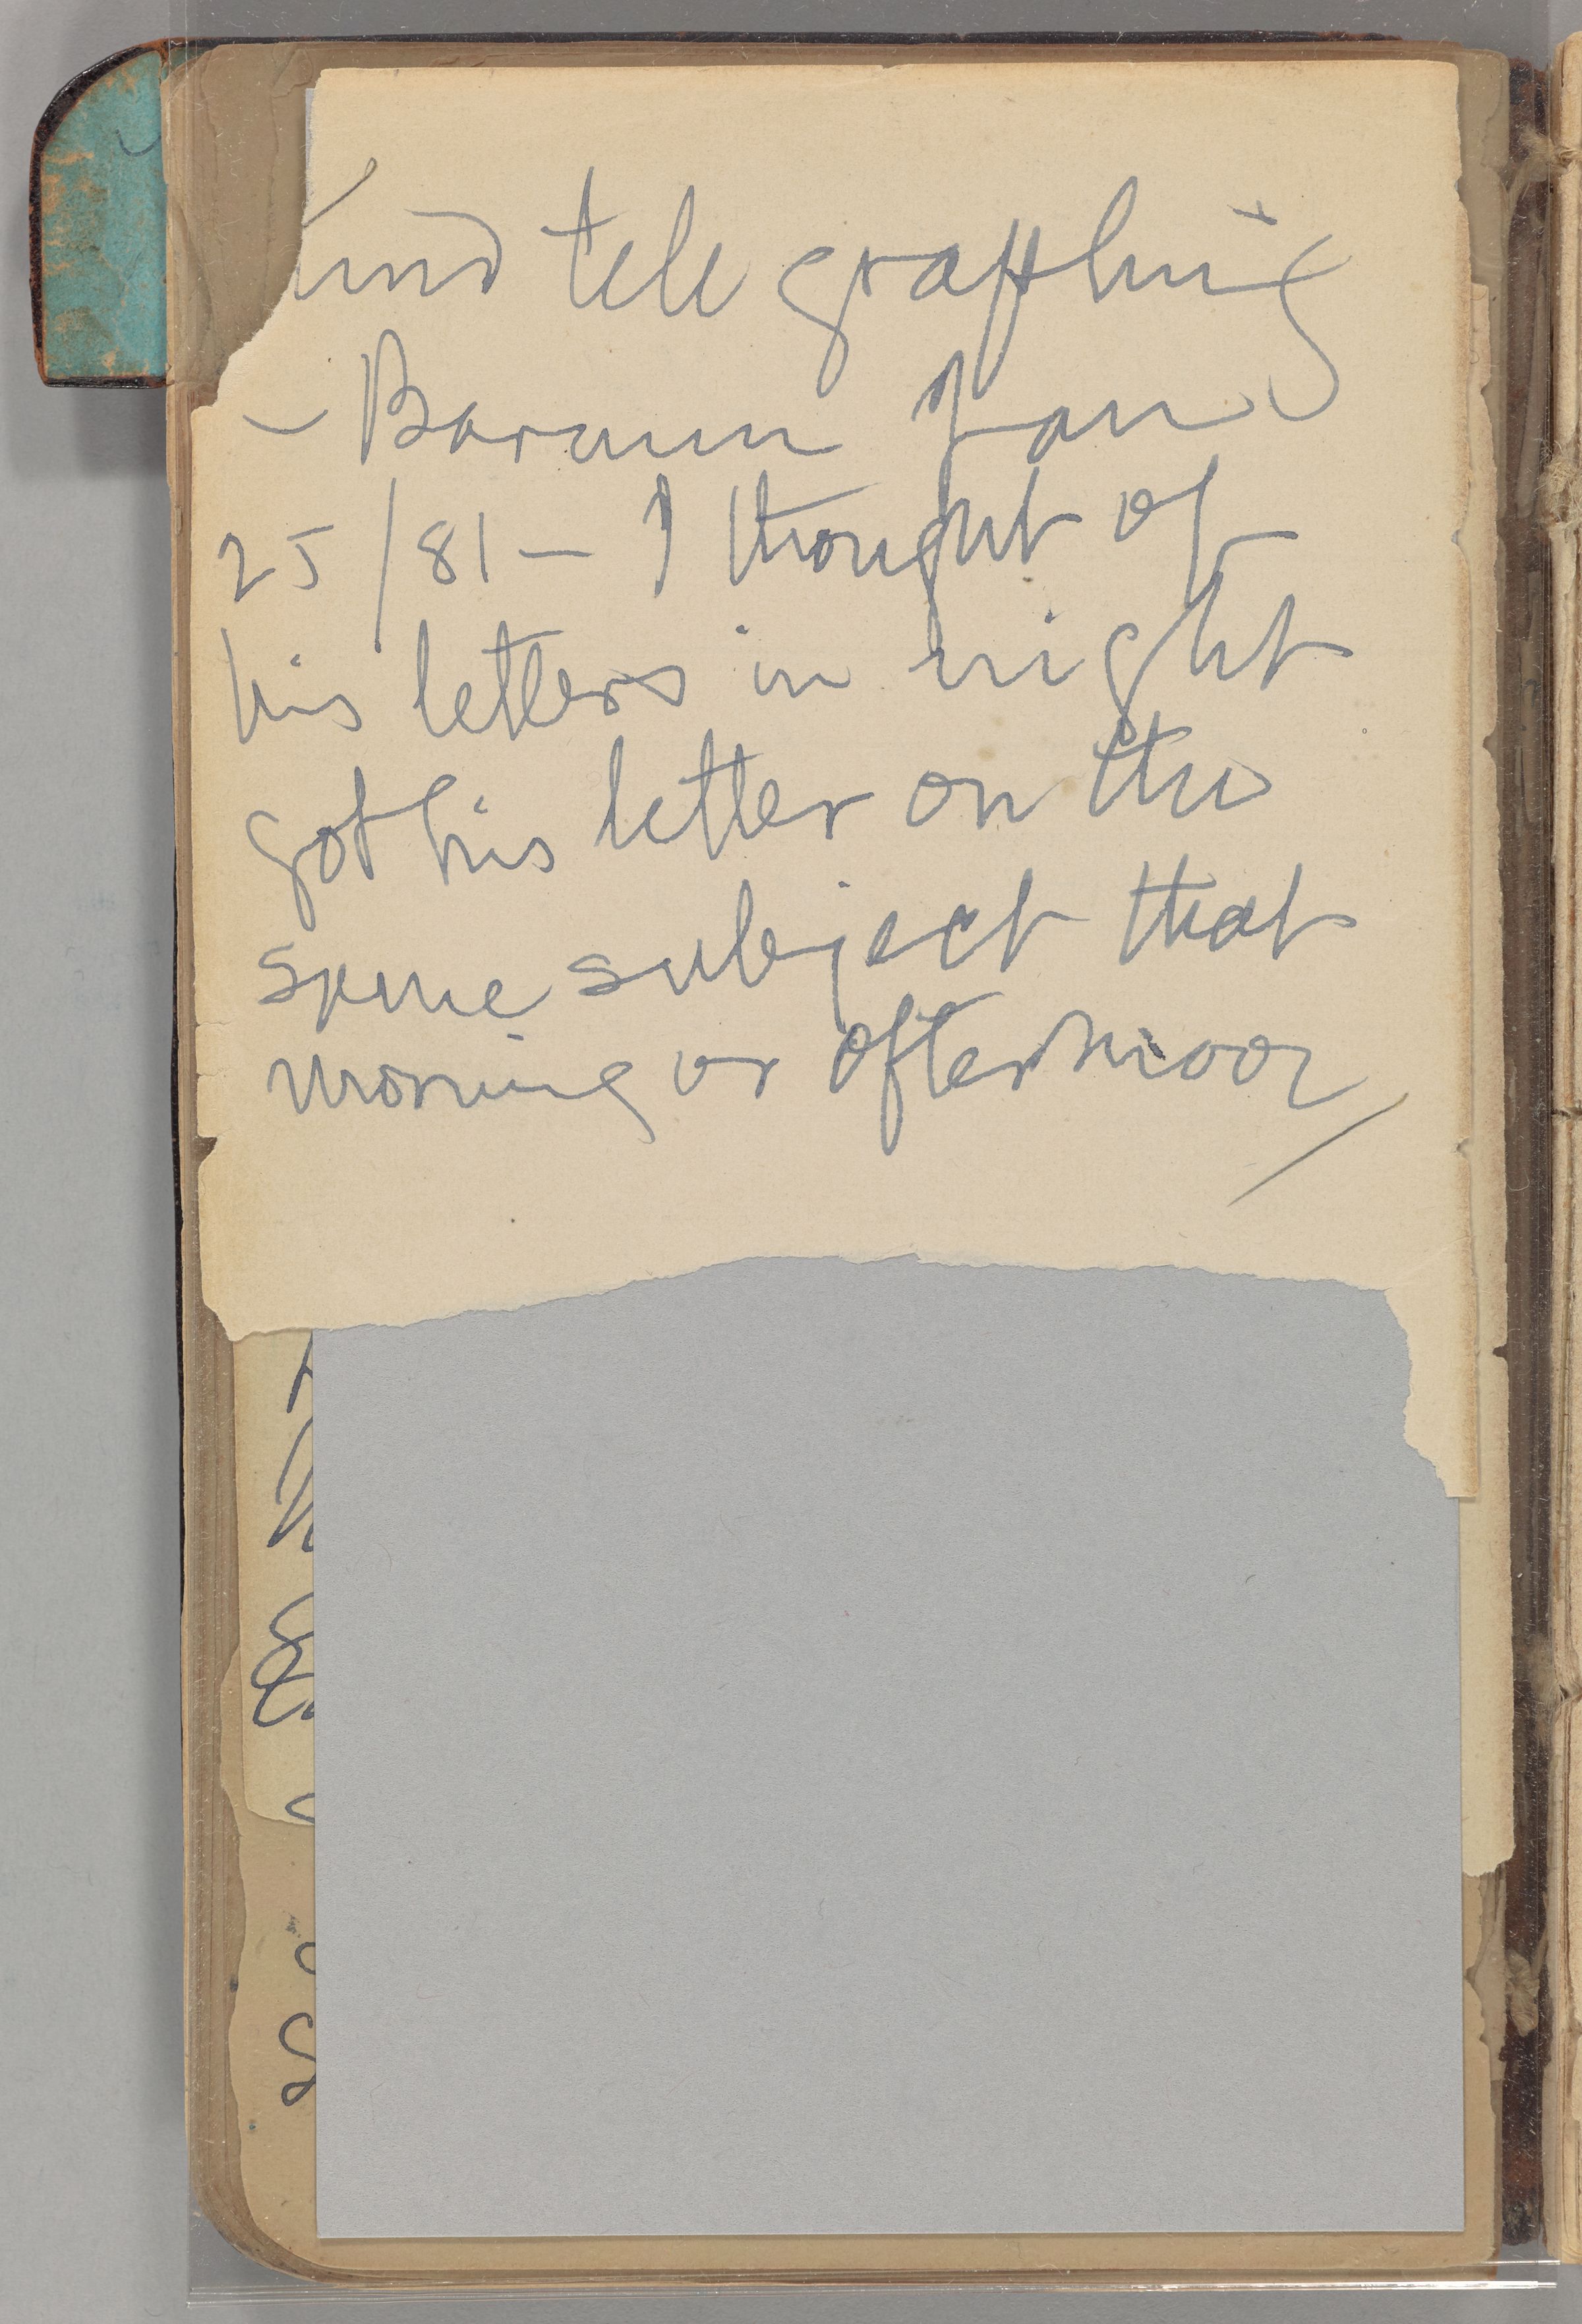 mind telegraphing
– Barnum Jan
25/81 – I thought of
his letters in night
got his letter on the
same subject that
morning or afternoon